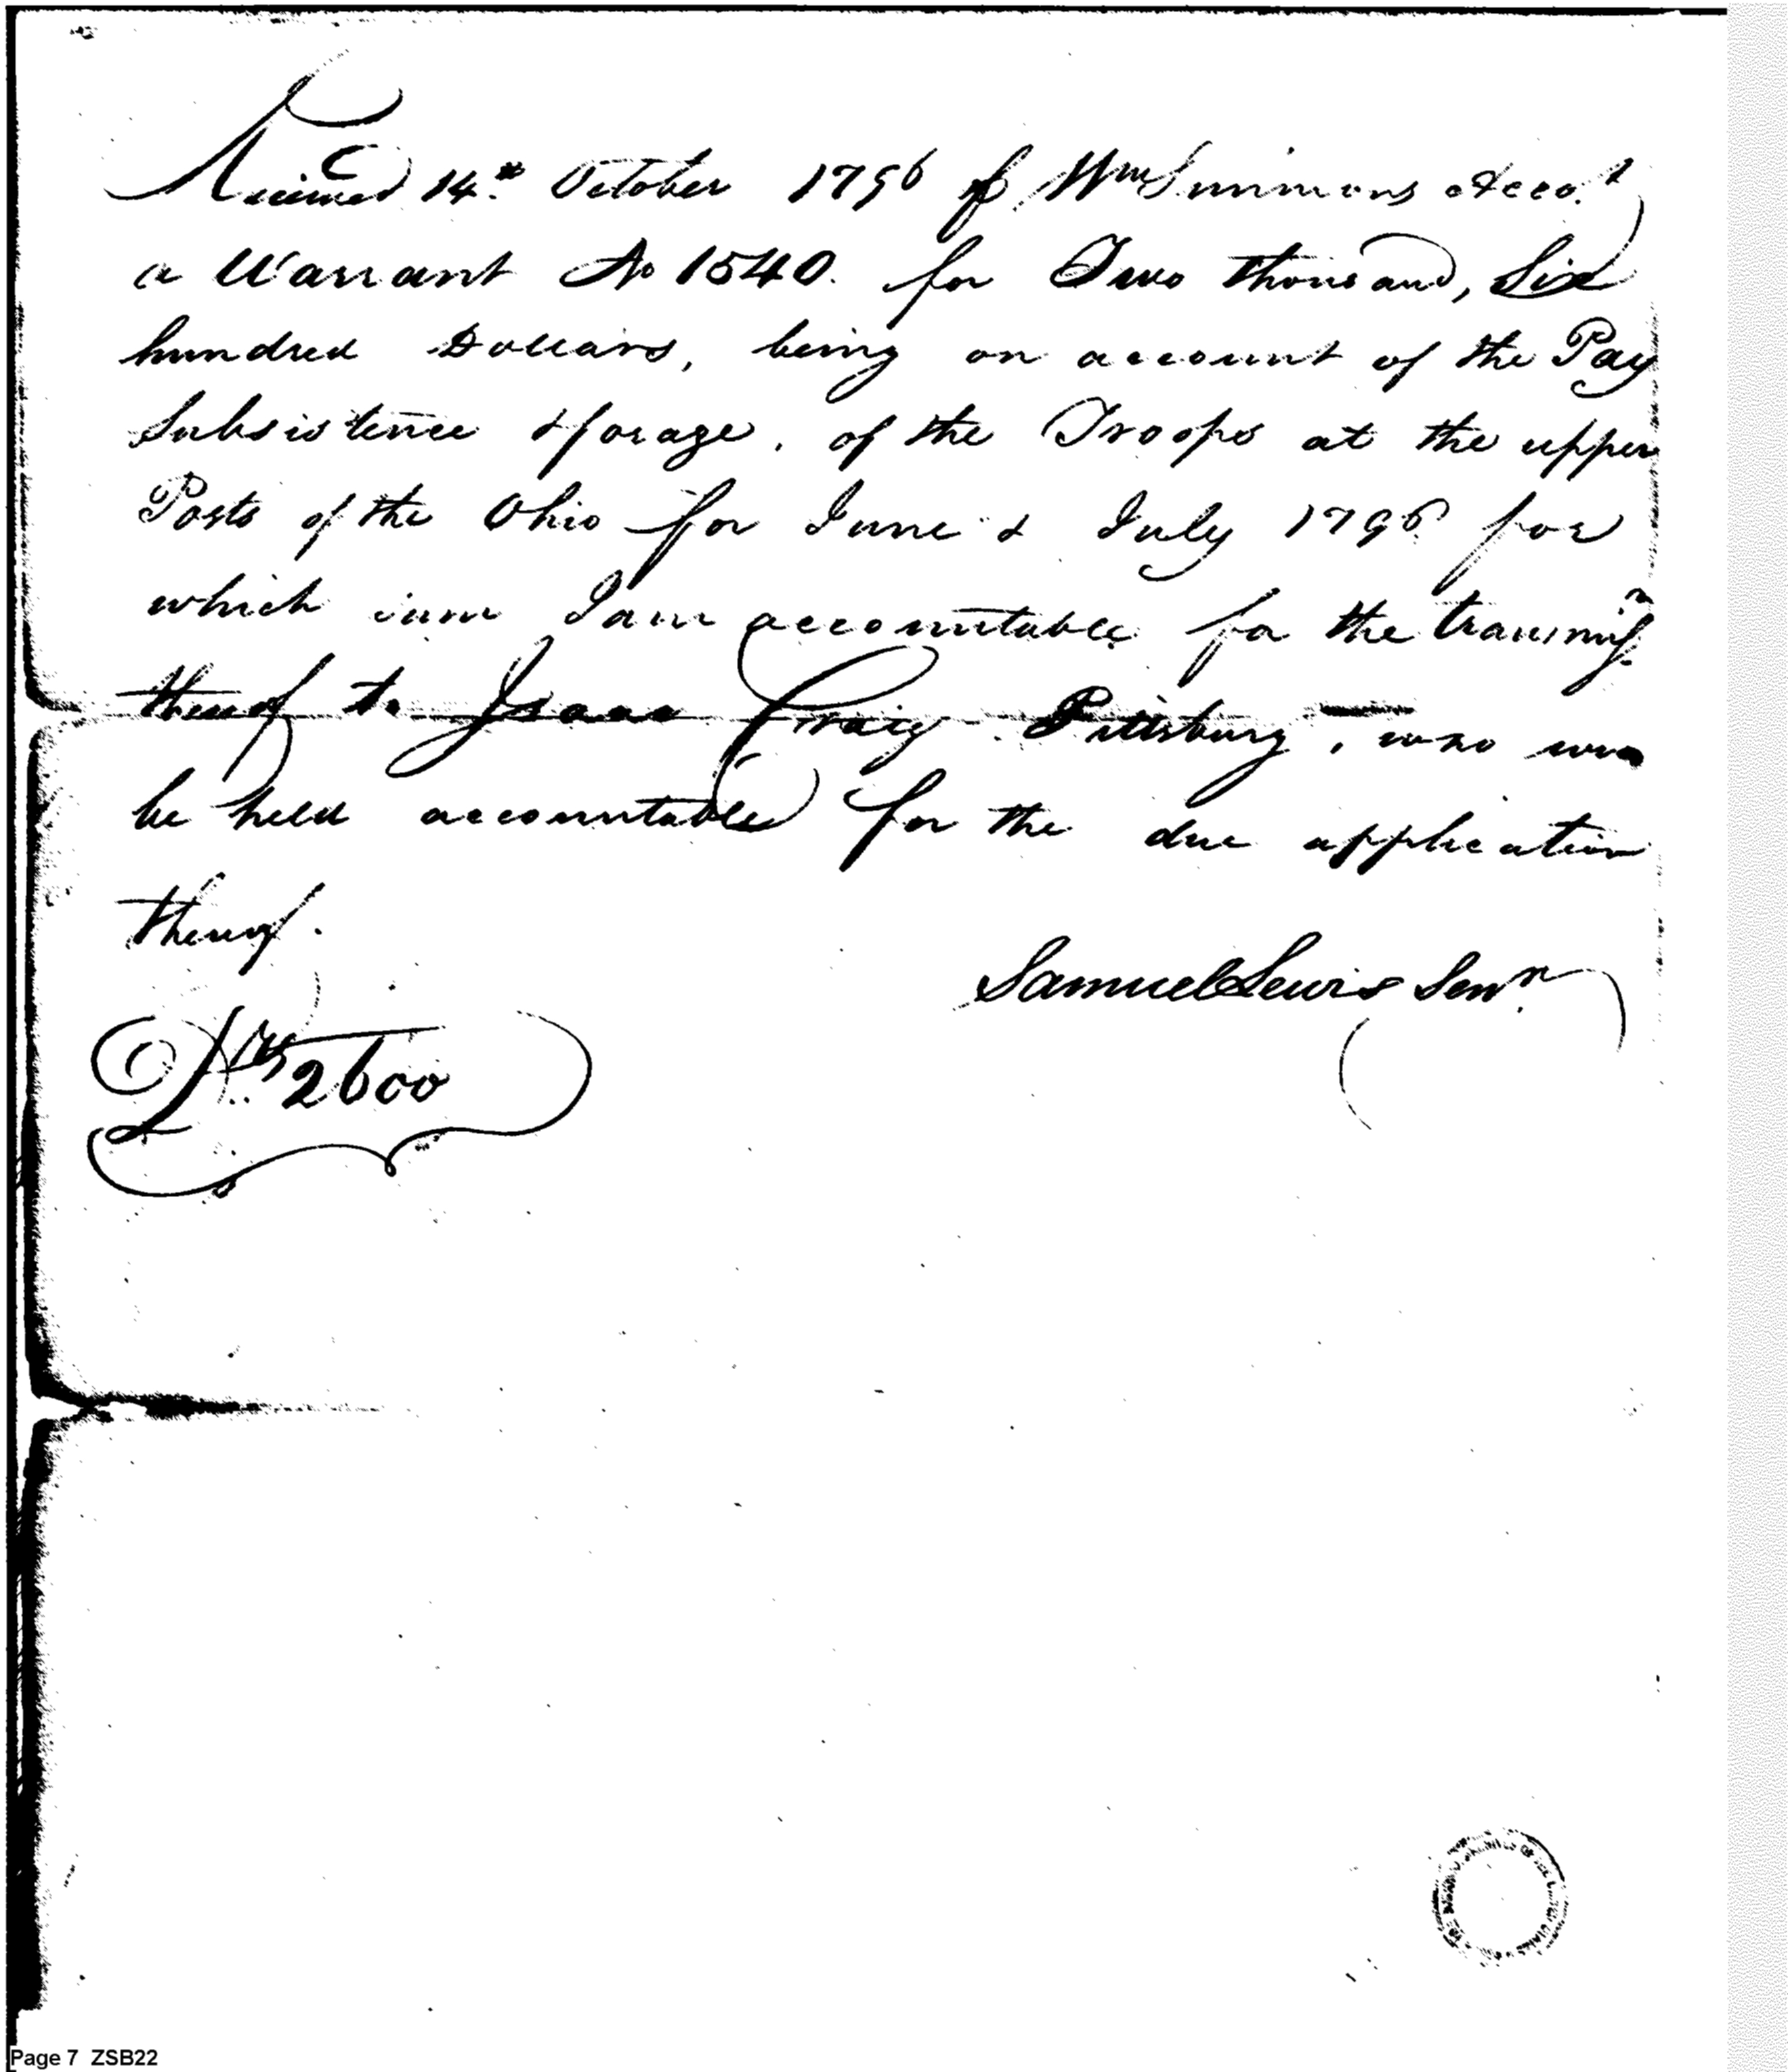 Received 14th October 1796 of Wm Simmons Accot
a Warrant No 1540. for Two thousand, Six
hundred Dollars, being on account of the Pay
Subsistence & forage, of the Troops at the upper
Posts of the Ohio for June & July 1796 for
which sum I am accountable for the transmissn
thereof to Isaac Craig Pittsburg, who will
be held accountable for the due application
thereof.
Samuel Lewis Senr
Drs 2600
Page 7 ZSB22